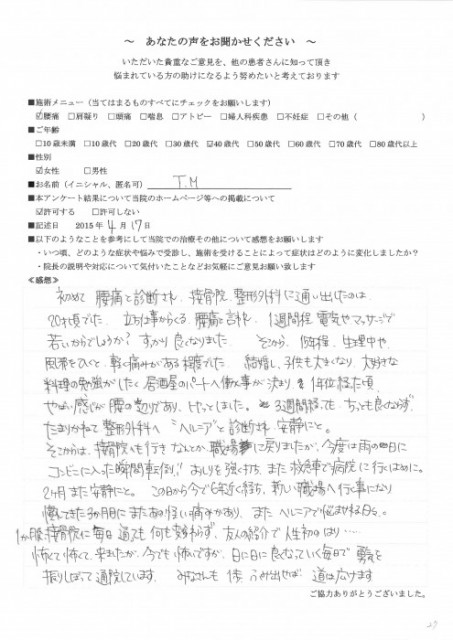 ～ あなたの声をお聞かせください ～
いただいた貴重なご意見を、他の患者さんに知って頂き
悩まれている方の助けになるよう努めたいと考えております
■施術メニュー（当てはまるものすべてにチェックをお願いします）
☑腰痛 □肩凝り □頭痛 □喘息 □アトピー □婦人科疾患 □不妊症 □その他（ ）
■ご年齢
□10歳未満 □10歳代 □20歳代 □30歳代 ☑40歳代 □50歳代 □60歳代 □70歳代 □80歳代以上
■性別
☑女性 □男性
■お名前（イニシャル、匿名可） T.M
■本アンケート結果について当院のホームページ等への掲載について
☑許可する □許可しない
■記述日 2015年 4月 17日
■以下のようなことを参考にして当院での治療その他について感想をお願いします
・いつ頃、どのような症状や悩みで受診し、施術を受けることによって症状はどのように変化しましたか？
・院長の説明や対応について気付いたことなどお気軽にご意見お願い致します
≪感想≫
初めて 腰痛と診断され 接骨院 整形外科に通い出したのは
20才頃でした 立ち仕事からくる 腰痛と言われ 1週間程 電気やマッサージで
若いからでしょうか？ すっかり良くなりました そこから 生理中や
風邪をひくと 軽く痛みがある程度でした 結婚し、子供も大きくなり、大好きな
料理の勉強がしたく 居酒屋のパートへ働く事が決まり 1年位経た頃
やばい感じが腰の辺りであり、しました。3週間経ても ちっとも良くならず
たまりかねて 整形外科へ “ヘルニア”と診断され 安静にと。
そこからは、接骨院へも行き なんとか 職場に戻りましたが、今度は雨の日に
コンビニに入った瞬間転倒!! おしりを強く打ち、また救急車で病院に行くはめに。
2ヶ月また安静にと。 この日から今で6年近く経ち、新しい職場へ行く事になり
働いてきた3か月目にまたあの怪しい痛みがあり、またヘルニアで悩まれる日々。
1か月 接骨院に毎日通っても何も変わらず、友人の紹介で人生初のはり……
怖くて怖くて、来ましたが、今でも怖いですが、日に日に良くなっていく毎日で 勇気を
振りしぼって通院しています。 みなさんも 1歩、ふみ出せば 道は広けます
ご協力ありがとうございました。
27